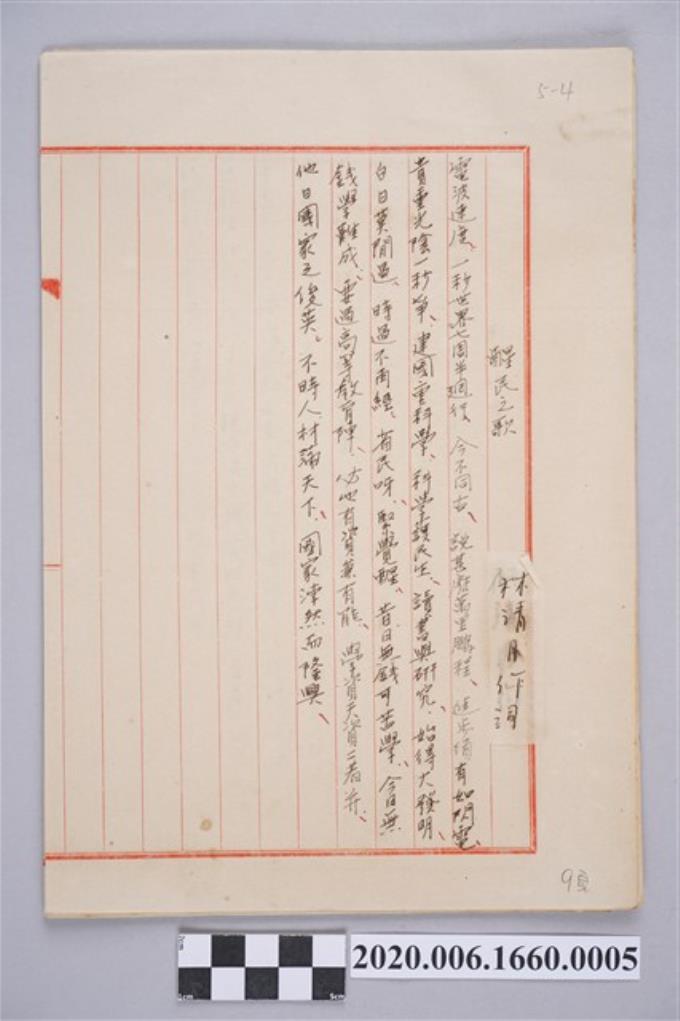 5-4
醒民之歌
林清月作詞
電波速度、一秒世界七周半過行、今不同古、說甚麼萬里鵬程、進步須有如閃電、
貴重光陰一秒爭、建國重科學、科學護民生、讀書與研究、始得大發明、
白日莫閒過、時過不再經、省民呀、緊覺醒、昔日無錢可苦學、今日無
錢學難成、要過高等教育陣、仿他有資兼有能、學資天資二者并、
他日國家之俊英、不時人材滿天下、國家津然而隆興、
9頁
2020.006.1660.0005
1cm
5cm